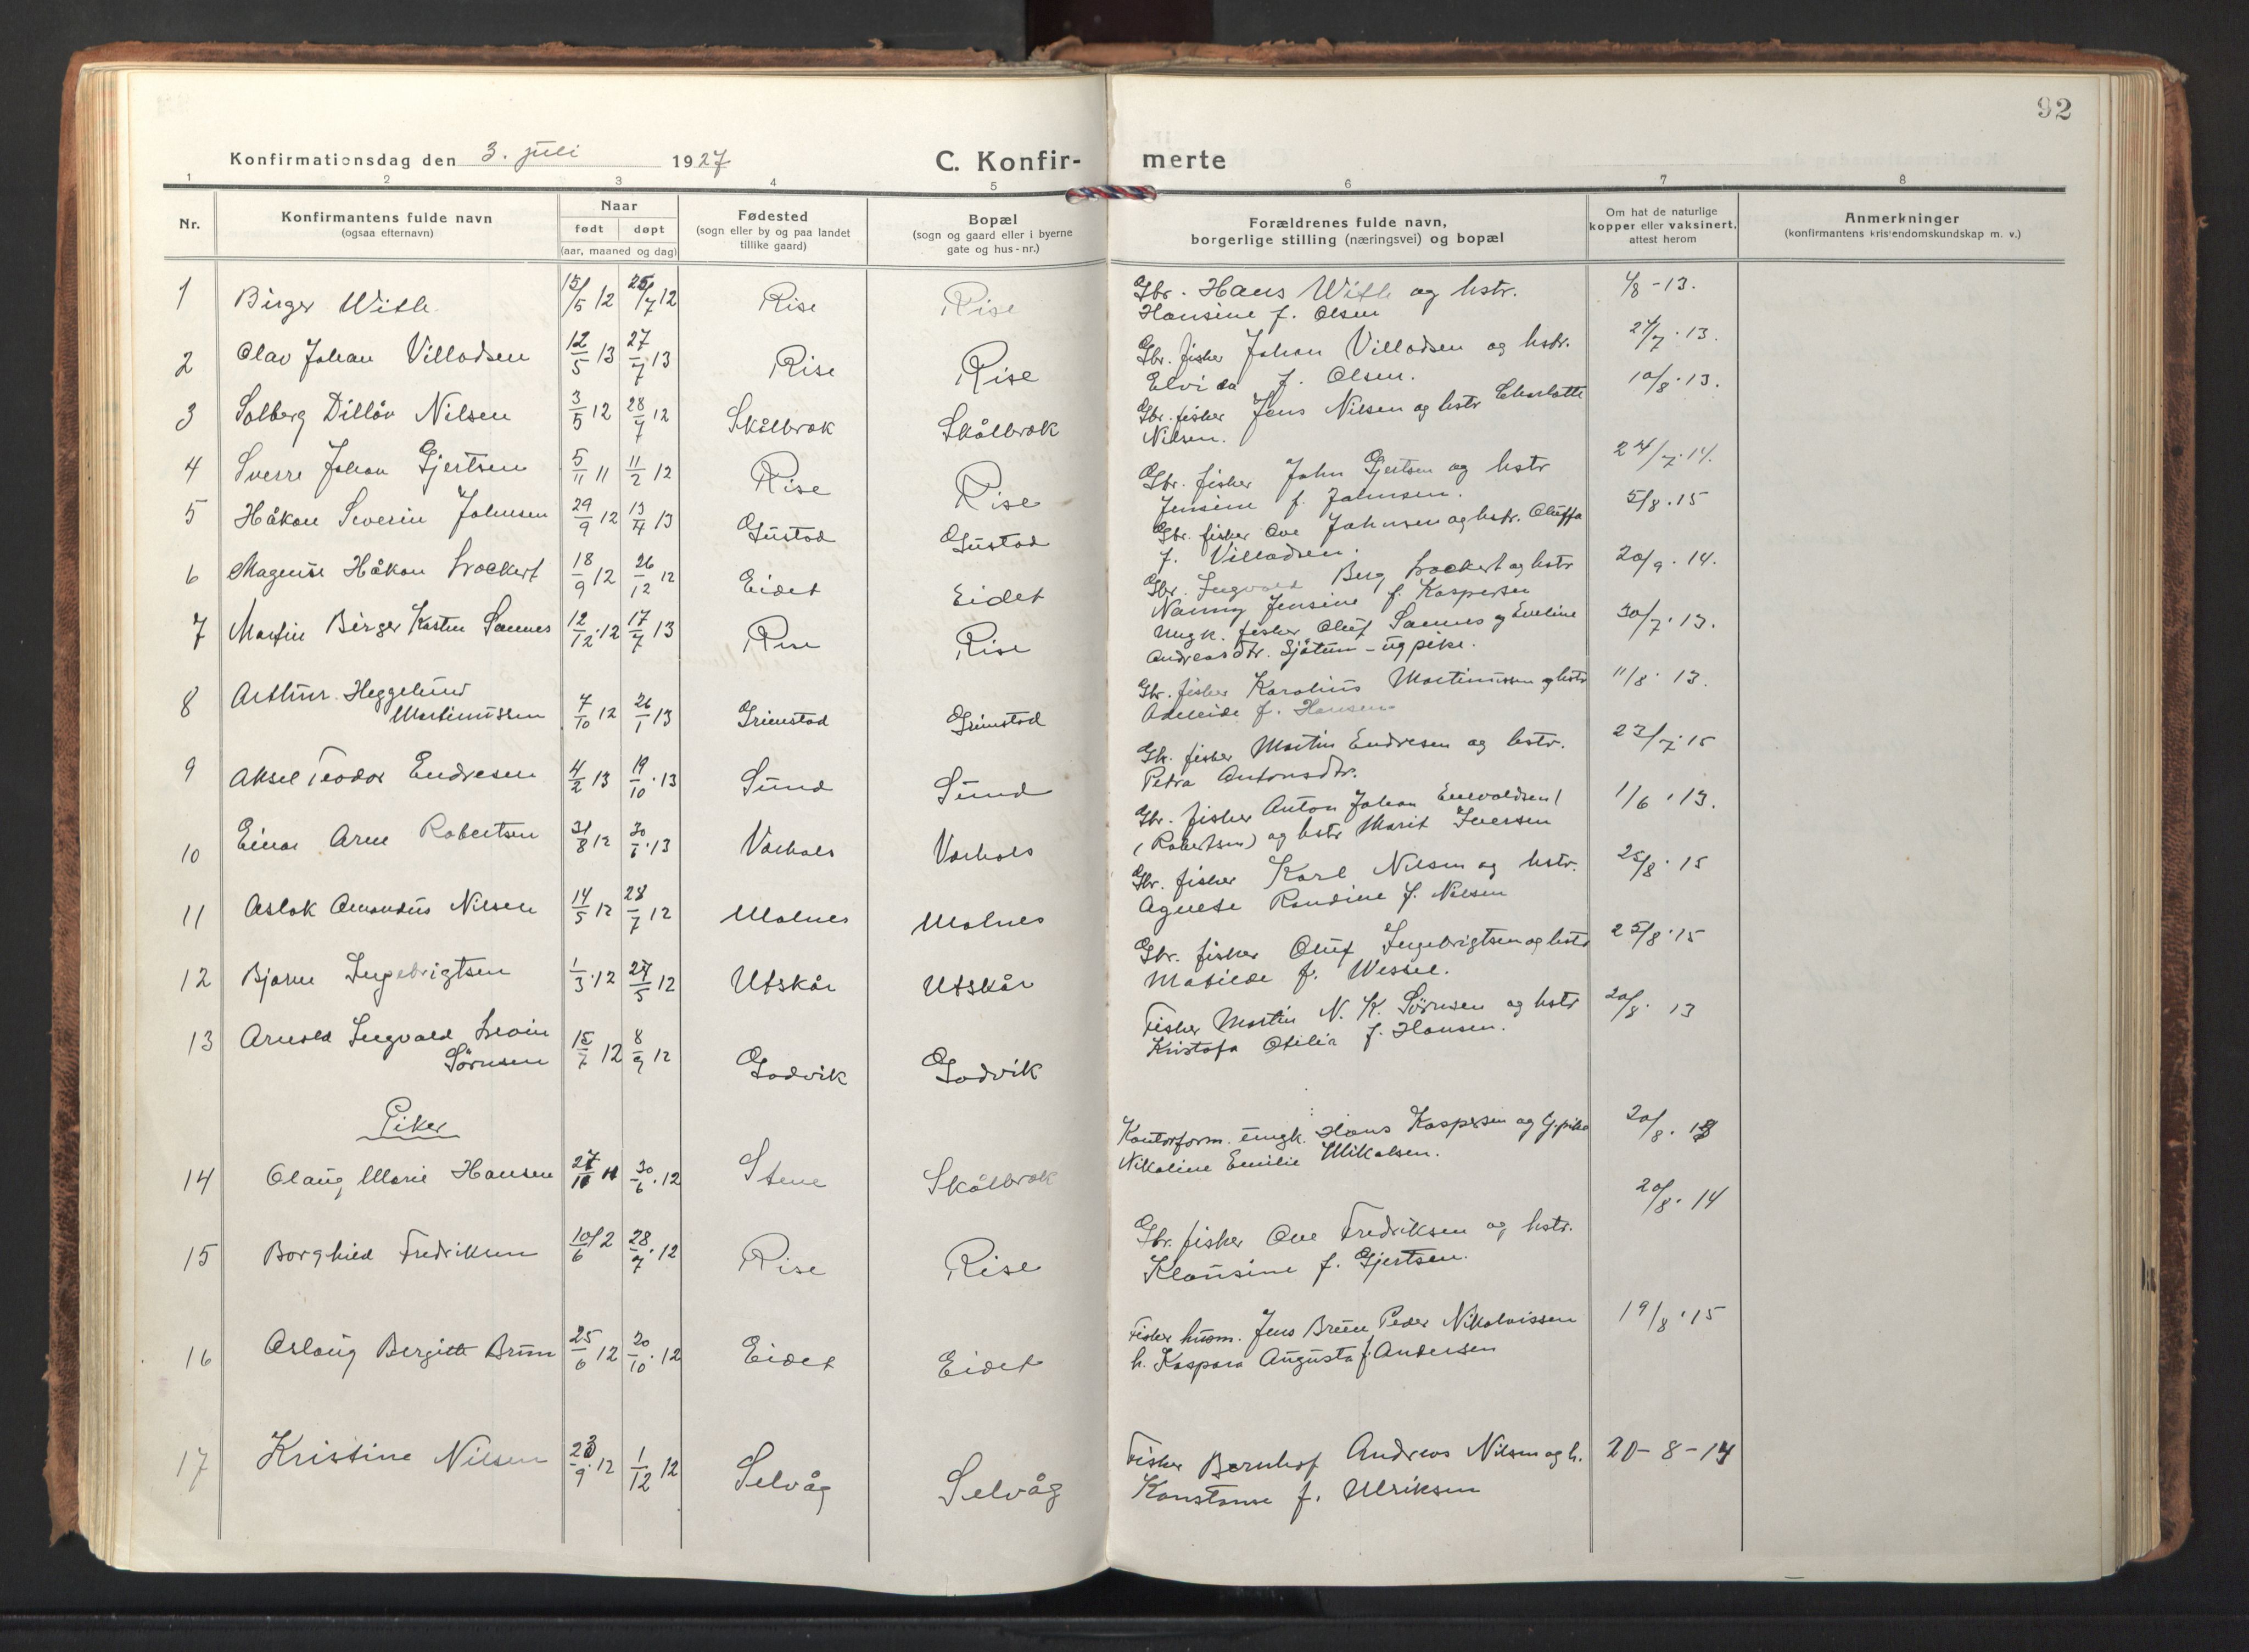 92
Konfirmationsdag den 3. juli 1927 C. Konfir- merte
1 2 3 4 5 6 7 8
Nr. Konfirmantens fulde navn (ogsaa efternavn) Naar født døpt (aar, maaned og dag) Fødested (sogn eller by og paa landet tillike gaard) Bopæl (sogn og gaard eller i byerne gate og hus-nr.) Forældrenes fulde navn, borgerlige stilling (næringsvei) og bopæl Om hat de naturlige kopper eller vaksinert, attest herom Anmerkninger (konfirmantens kristendomskundskap m. v.)
1 Birger With 15/5 12 25/7 12 Rise Rise Gbr. Hans With og hstr. 4/8 - 13.
Hansine f. Olsen
2 Olav Johan Villadsen 12/5 13 27/7 13 Rise Rise Gbr. fisker Johan Villadsen og hstr. 27/7. 13.
Elvida f. Olsen.
3 Solberg Dilløv Nilsen 3/5 12 28/7 12 Skålbrok Skålbrok Gbr. fisker Jens Nilsen og hstr Charlotte 10/8. 13.
Nilsen.
4 Sverre Johan Gjertsen 5/11 11 11/2 12 Rise Rise Gbr. fisker John Gjertsen og hstr 24/7. 14.
Jensine f. Johnsen.
5 Håkon Severin Johnsen 29/9 12 13/4 13 Gustad Gustad Gbr. fisker Ove Johnsen og hstr. Oluffa 5/8. 15
f. Villadsen.
6 Magnus Håkon Lockert 18/9 12 26/12 12 Eidet Eidet Gbr. Ingvald Berg Lockert og hstr 20/9. 14.
Nanny Jensine f. Kaspersen
7 Martin Birger Karsten Sannes 12/12. 12 17/7 13 Rise Rise Ungk. fisker Oluf Sannes og Eveline 30/7. 13.
Andreasdtr. Sjåtun - ug pike.
8 Arthur Heggelund
Martinussen 7/10 12 26/1 13 Grimstad Grimstad Gbr. fisker Karolius Martinussen og hstr 11/8. 13.
Adeleide f. Hansen
9 Aksel Teodor Endresen 4/2 13 19/10. 13 Sund Sund Gbr. fisker Martin Endresen og hstr. 23/7. 15
Petra Antonsdtr.
10 Einar Arne Robertsen 31/8 12 30/6. 13 Varhals Varhals Gbr. fisker Anton Johan Enevoldsen 1/6. 13.
(Robertsen) og hstr Marit Iversen
11 Aslak Amandus Nilsen 14/5 12 28/7 12 Malnes Malnes Gbr. fisker Karl Nilsen og hstr. 25/8. 15
Agnete Randine f. Nilsen
12 Bjarne Ingebrigtsen 1/3. 12 27/5 12 Utskår Utskår Gbr. fisker Oluf Ingebrigtsen og hstr 25/8. 15
Matilde f. Wessel.
13 Arnold Ingvald Levin
Sørnsen 15/7 12 8/9 12 Godvik Godvik Fisker Martin N. K. Sørnsen og hstr 20/8. 13
Kristofa Otilia f. Hansen.
Piker
14 Olaug Marie Hansen 27/10 11 30/6. 12 Stene Skålbrok Kontorform. ungk. Hans Kaspersen og G.pike 20/8. 13
Nikoline Emilie Mikalsen.
15 Borghild Fredriksen 10/6 12 28/7. 12 Rise Rise Gbr. fisker Ove Fredriksen og hstr. 20/8. 14
Klausine f. Gjertsen.
16 Aslaug Bergitte Brun 25/6 12 20/10. 12 Eidet Eidet Fisker husm. Jens Bruun Peder Nikolaissen 19/8. 15
h. Kaspara Augusta f. Andersen
17 Kristine Nilsen 23/9. 12 1/12 12 Selvåg Selvåg Fisker Bernhof Andreas Nilsen og h. 20-8-14
Konstanse f. Ulriksen